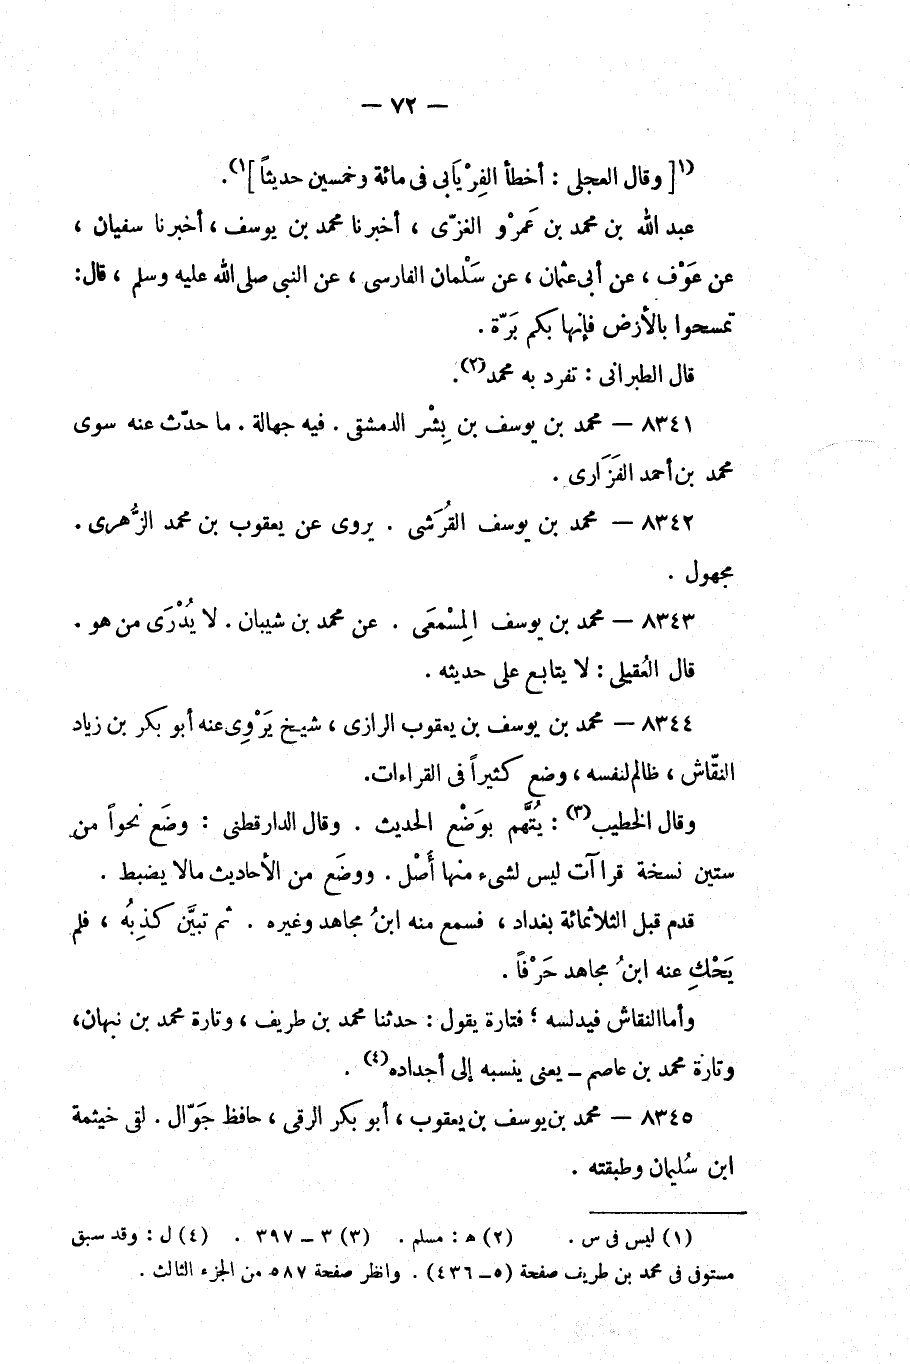 — ٧٢ —
(١)[ وقال العجلى : أخطأ الفِرْيَابى فى مائة وخمسين حديثاً ](١).
عبد الله بن محمد بن عَمرْو الغزّى ، أخبرنا محمد بن يوسف ، أخبرنا سفيان ،
عن عَوْف ، عن أبى عثمان ، عن سَلْمان الفارسى ، عن النبى صلى الله عليه وسلم ، قال :
تمسحوا بالأرض فإنها بكم بَرّة .
قال الطبرانى : تفرد به محمد(٢).
٨٣٤١ — محمد بن يوسف بن بِشْر الدمشقى . فيه جهالة . ما حدّث عنه سوى
محمد بن أحمد الفَزَارى .
٨٣٤٢ — محمد بن يوسف القُرَشى . يروى عن يعقوب بن محمد الزُّهرى .
مجهول .
٨٣٤٣ — محمد بن يوسف المِسْمَعَى . عن محمد بن شيبان . لا يُدْرَى من هو .
قال العُقيلى : لا يتابع على حديثه .
٨٣٤٤ — محمد بن يوسف بن يعقوب الرازى ، شيخ يَرْوِى عنه أبو بكر بن زياد
النقّاش ، ظالم لنفسه ، وضع كثيراً فى القراءات.
وقال الخطيب(٣) : يُتَّهم بوَضْع الحديث . وقال الدارقطنى : وضَع نحواً من
ستين نسخة قراآت ليس لشىء منها أَصْل . ووضَع من الأحاديث مالا يضبط .
قدم قبل الثلاثمائة بغداد ، فسمع منه ابنُ مجاهد وغيره . ثم تبيَّن كذِبُه ، فلم
يَحْكِ عنه ابنُ مجاهد حَرْفاً .
وأما النقاش فيدلسه ؛ فتارة يقول : حدثنا محمد بن طريف ، وتارة محمد بن نبهان،
وتارة محمد بن عاصم — يعنى ينسبه إلى أجداده(٤) .
٨٣٤٥ — محمد بن يوسف بن يعقوب ، أبو بكر الرقى ، حافظ جَوّال . لقى خيثمة
ابن سُليمان وطبقته .
(١) ليس فى س . (٢) ه : مسلم . (٣) ٣ — ٣٩٧ . (٤) ل : وقد سبق
مستوفى فى محمد بن طريف صفحة (٥ — ٤٣٦) . وانظر صفحة ٥٨٧ من الجزء الثالث .